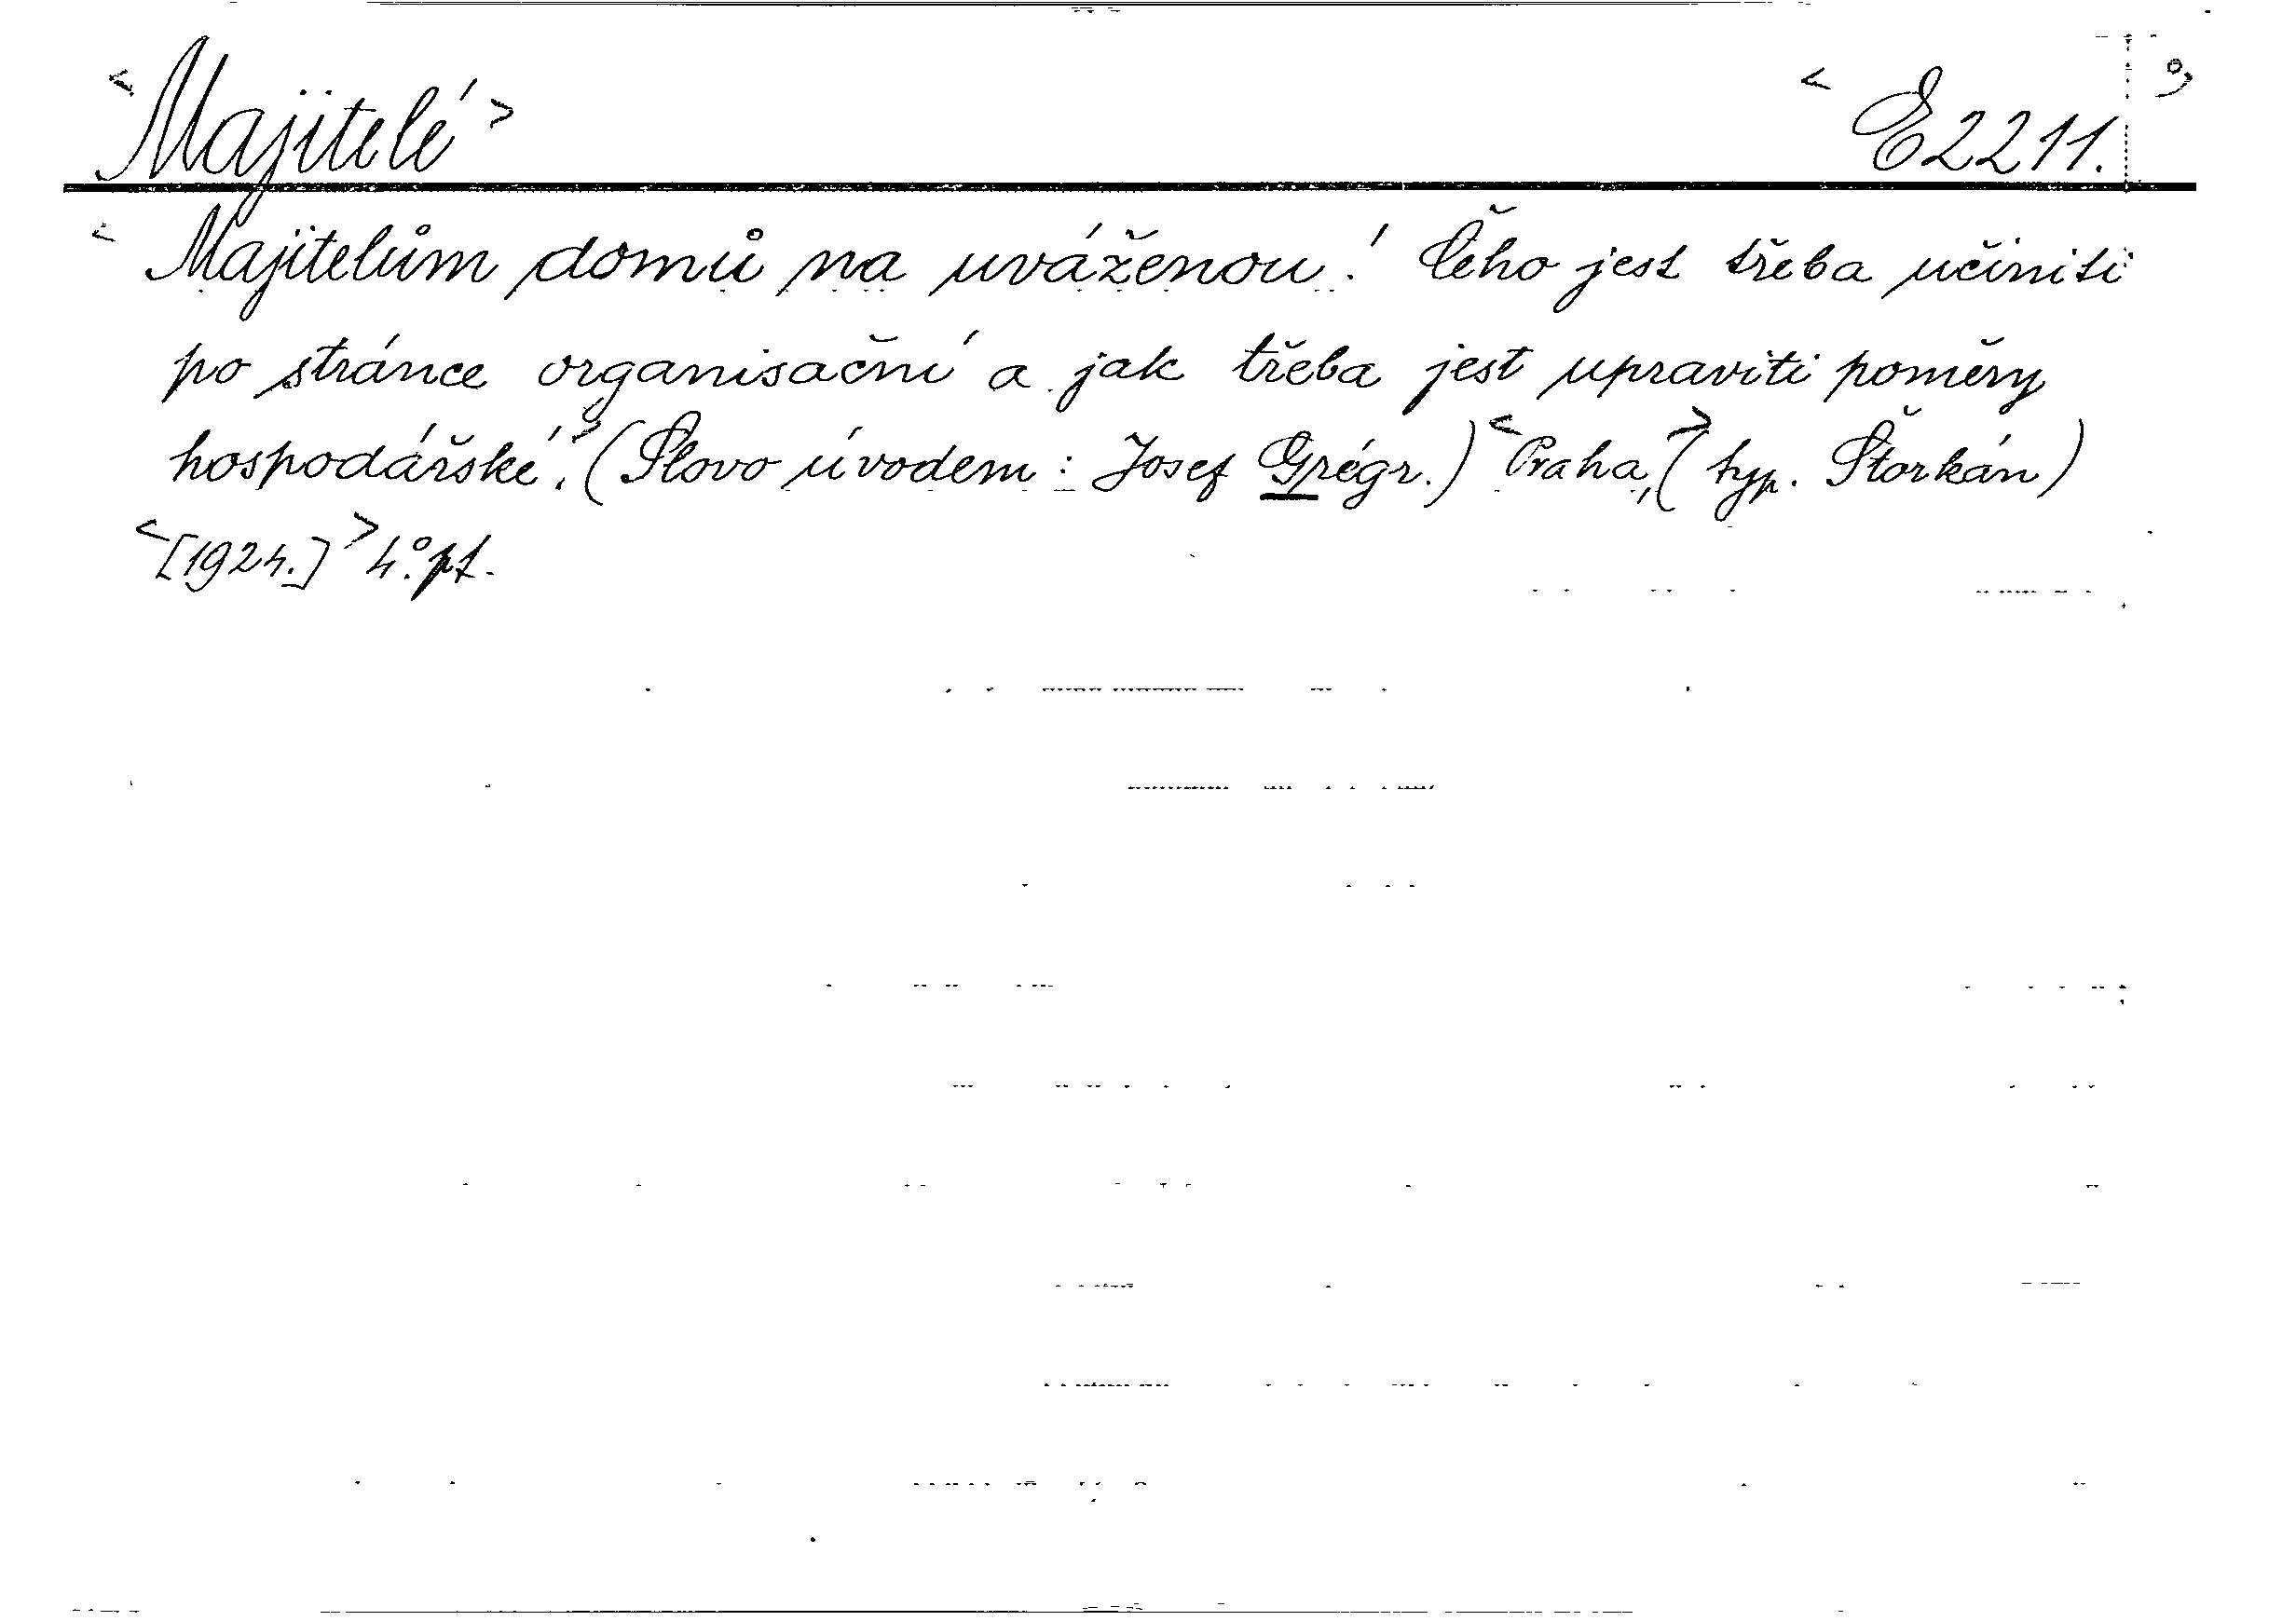 <Majitelé> <E2211.
<Majitelům domů na uváženou! Čeho jest třeba učiniti
po stránce organisační a jak třeba jest upraviti poměry
hospodářské.> (Slovo úvodem: Josef Grégr.) <Praha,> (typ. Štorkán)
<[1924.]> 4.° pt.